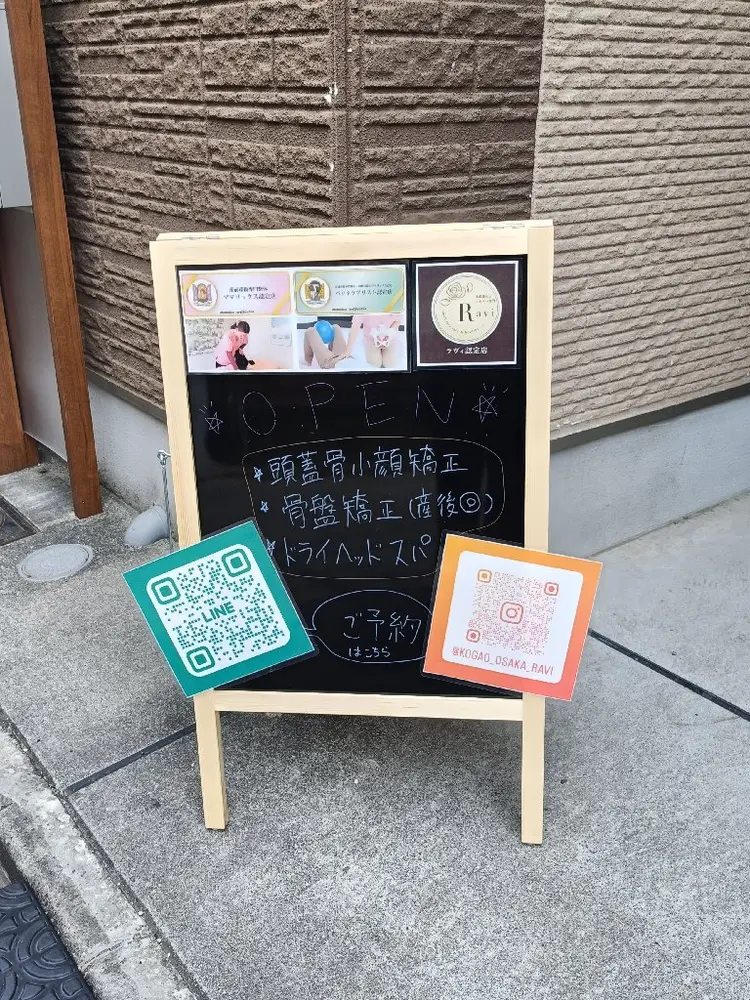 ママリックス認定店
ペットラブリスト認定店
Ravi
ラヴィ認定店
OPEN
頭蓋骨小顔矯正
骨盤矯正(産後◎)
ドライヘッドスパ
ご予約
はこちら
LINE
@KOGAO_OSAKA_RAVI